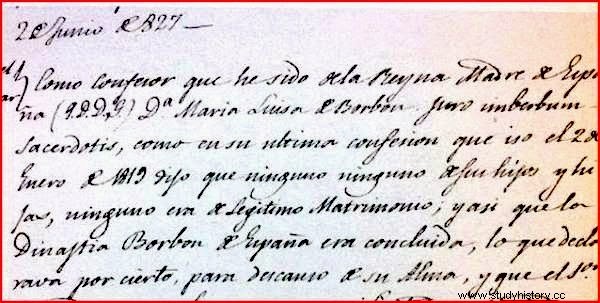 2 de Junio de 1827 —
Como confesor que he sido de la Reyna Madre de Espa
ña (q. D. D. G.) Dª Maria Luisa de Borbon. Juro imberbum
Sacerdotis, como en su ultima confesion que iso el 2 de
Enero de 1819 dijo que ninguno ninguno de sus hijos y hi
jas, ninguno era de legitimo Matrimonio; y asi que la
Dinastia Borbon de España era concluida, lo que decla
rava por cierto, para descanso de su Alma, y que el Sor
www.studyhistory.cc